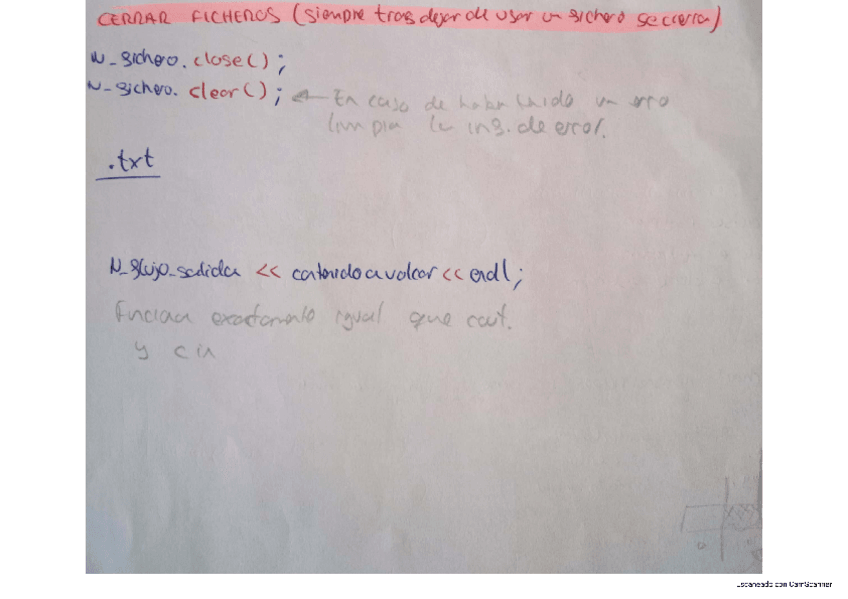 CERRAR FICHEROS (siempre tras dejar de usar un fichero se cierra)
N_fichero.close();
N_fichero.clear(); ← En caso de haber habido un error
limpia la ins. de error.
.txt
N_flujo_salida << contenido a volcar << endl;
Funciona exactamente igual que cout.
y cin
Escaneado con CamScanner